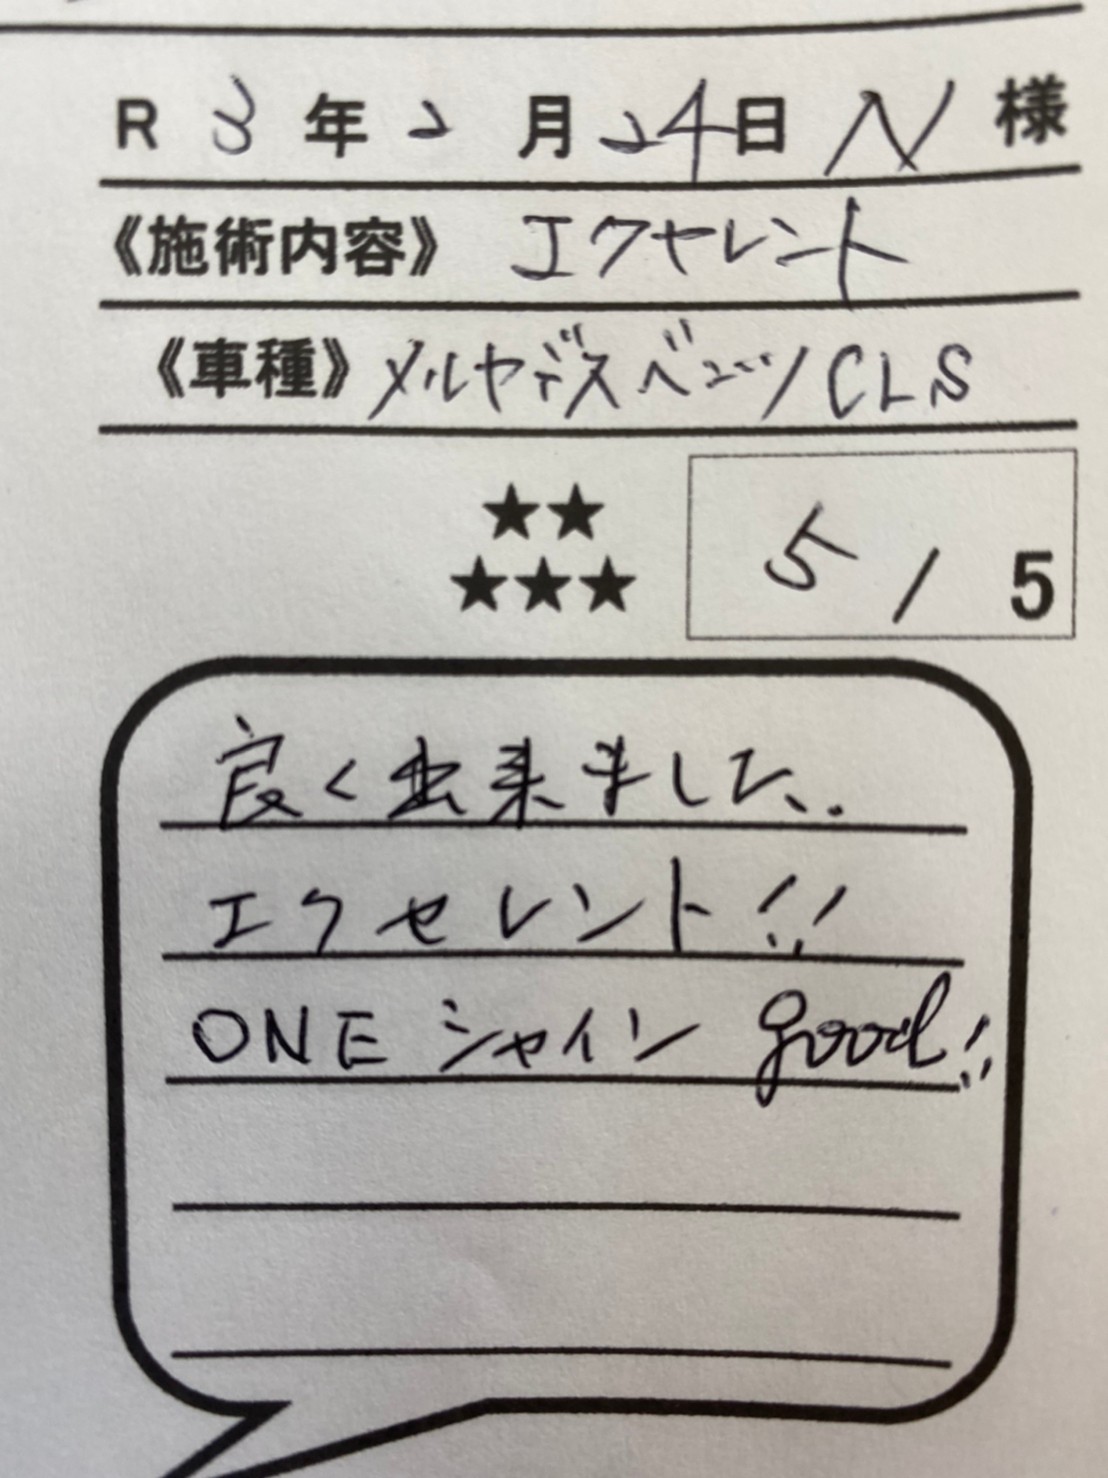 R 3 年 2 月 24 日 N 様
《施術内容》 エクセレント
《車種》 メルセデスベンツ CLS
★★
★★★ 5 / 5
良く出来ました.
エクセレント!!
ONE シャイン good!!